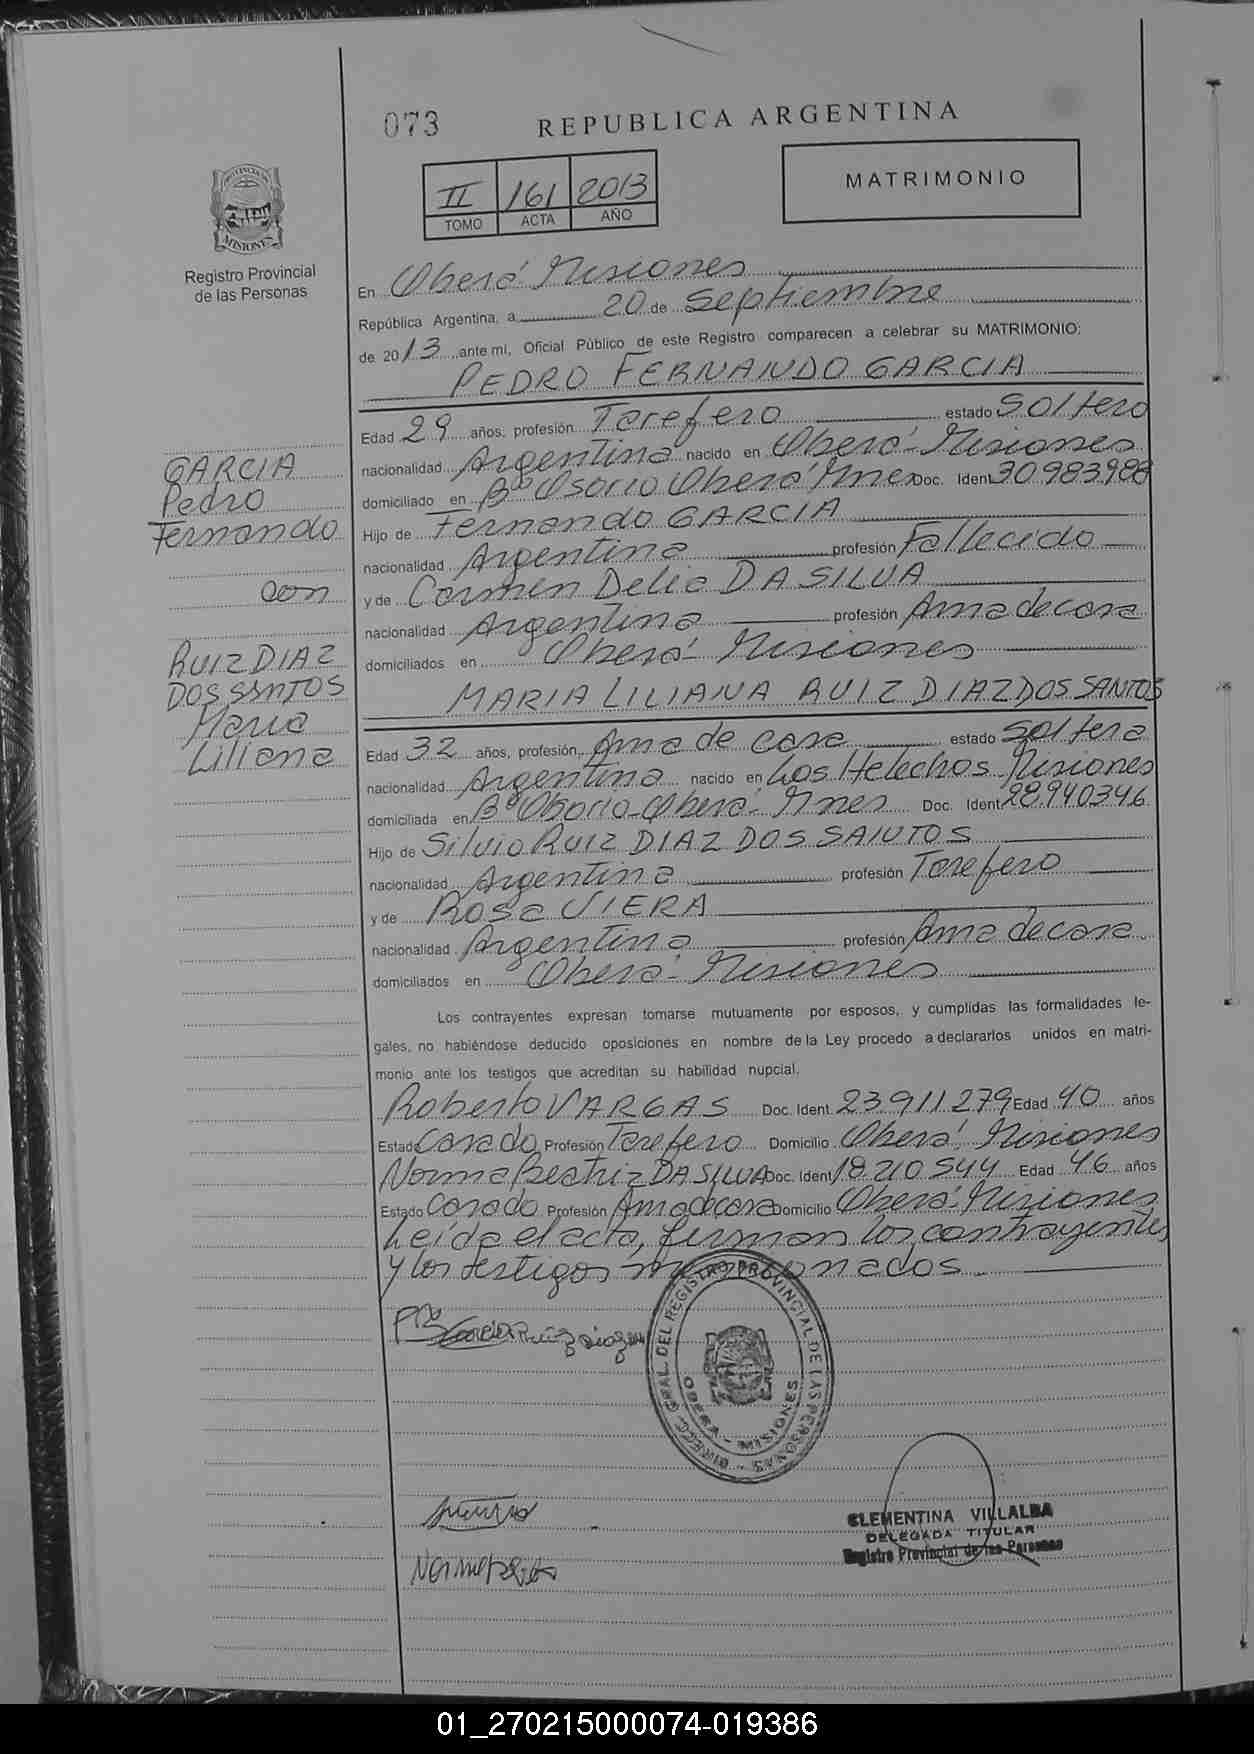 073
REPUBLICA ARGENTINA
II 161 2013
TOMO ACTA AÑO
MATRIMONIO
PROVINCIA DE
MISIONES
Registro Provincial
de las Personas
En Oberá Misiones
República Argentina, a 20 de Septiembre
de 2013 ante mi, Oficial Público de este Registro comparecen a celebrar su MATRIMONIO:
PEDRO FERNANDO GARCIA
Edad 29 años, profesión Tarefero estado Soltero
nacionalidad Argentina nacido en Oberá-Misiones
domiciliado en B° Osorio Oberá Mnes Doc. Ident 30983988
Hijo de Fernando GARCIA
nacionalidad Argentina profesión Fallecido
y de Carmen Delia DA SILVA
nacionalidad Argentina profesión Ama de casa
domiciliados en Oberá- Misiones
MARIA LILIANA RUIZ DIAZ DOS SANTOS
Edad 32 años, profesión, Ama de casa estado Soltera
nacionalidad Argentina nacido en Los Helechos Misiones
domiciliada en B° Osorio-Oberá- Mnes Doc. Ident 28.940346
Hijo de Silvio RUIZ DIAZ DOS SANTOS
nacionalidad Argentina profesión Tarefero
y de Rosa VIERA
nacionalidad Argentina profesión Ama de casa
domiciliados en Oberá- Misiones
GARCIA
Pedro
Fernando
con
RUIZ DIAZ
DOS SANTOS
Maria
Liliana
Los contrayentes expresan tomarse mutuamente por esposos, y cumplidas las formalidades le-
gales, no habiéndose deducido oposiciones en nombre de la Ley procedo a declararlos unidos en matri-
monio ante los testigos que acreditan su habilidad nupcial.
Roberto VARGAS Doc. Ident. 23911279 Edad 40 años
Estado Casado Profesión Tarefero Domicilio Oberá, Misiones
Norma Beatriz DA SILVA Doc. Ident 18210544 Edad 46 años
Estado Casado Profesión Ama de casa Domicilio Oberá-Misiones
Leída el acta, firman los contrayentes
y los testigos mencionados.
DIRECC. GRAL. DEL REGISTRO PROVINCIAL DE LAS PERSONAS
OBERA - MISIONES
CLEMENTINA VILLALBA
DELEGADA TITULAR
Registro Provincial de las Personas
01_270215000074-019386